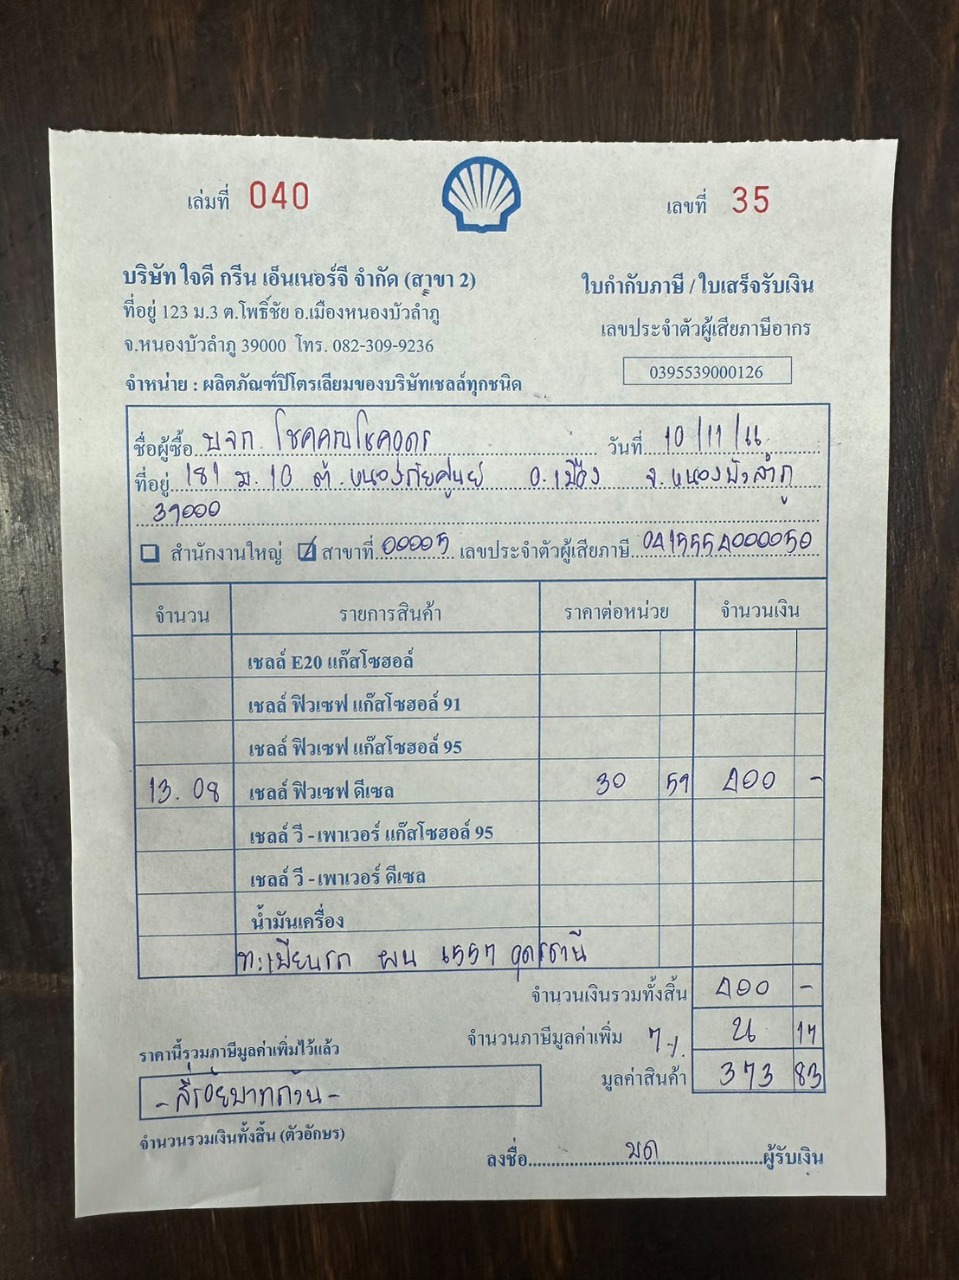 เล่มที่ 040
เลขที่ 35
บริษัท ใจดี กรีน เอ็นเนอร์จี จำกัด (สาขา 2)
ที่อยู่ 123 ม.3 ต.โพธิ์ชัย อ.เมืองหนองบัวลำภู
จ.หนองบัวลำภู 39000 โทร. 082-309-9236
จำหน่าย : ผลิตภัณฑ์ปิโตรเลียมของบริษัทเชลล์ทุกชนิด
ใบกำกับภาษี / ใบเสร็จรับเงิน
เลขประจำตัวผู้เสียภาษีอากร
0395539000126
ชื่อผู้ซื้อ บจก. โชคคณโชคอุดร วันที่ 10/11/
ที่อยู่ 181 ม.10 ต.หนองภัยศูนย์ อ.เมือง จ.หนองบัวลำภู
39000
สำนักงานใหญ่ สาขาที่ 00005 เลขประจำตัวผู้เสียภาษี 0415554000050
จำนวน รายการสินค้า ราคาต่อหน่วย จำนวนเงิน
เชลล์ E20 แก๊สโซฮอล์
เชลล์ ฟิวเซฟ แก๊สโซฮอล์ 91
เชลล์ ฟิวเซฟ แก๊สโซฮอล์ 95
13.08 เชลล์ ฟิวเซฟ ดีเซล 30 59 400 -
เชลล์ วี - เพาเวอร์ แก๊สโซฮอล์ 95
เชลล์ วี - เพาเวอร์ ดีเซล
น้ำมันเครื่อง
ทะเบียนรถ ผน 6557 อุดรธานี
จำนวนเงินรวมทั้งสิ้น 400 -
จำนวนภาษีมูลค่าเพิ่ม 7% 26 17
มูลค่าสินค้า 373 83
ราคานี้รวมภาษีมูลค่าเพิ่มไว้แล้ว
- สี่ร้อยบาทถ้วน -
จำนวนรวมเงินทั้งสิ้น (ตัวอักษร)
ลงชื่อ มด ผู้รับเงิน